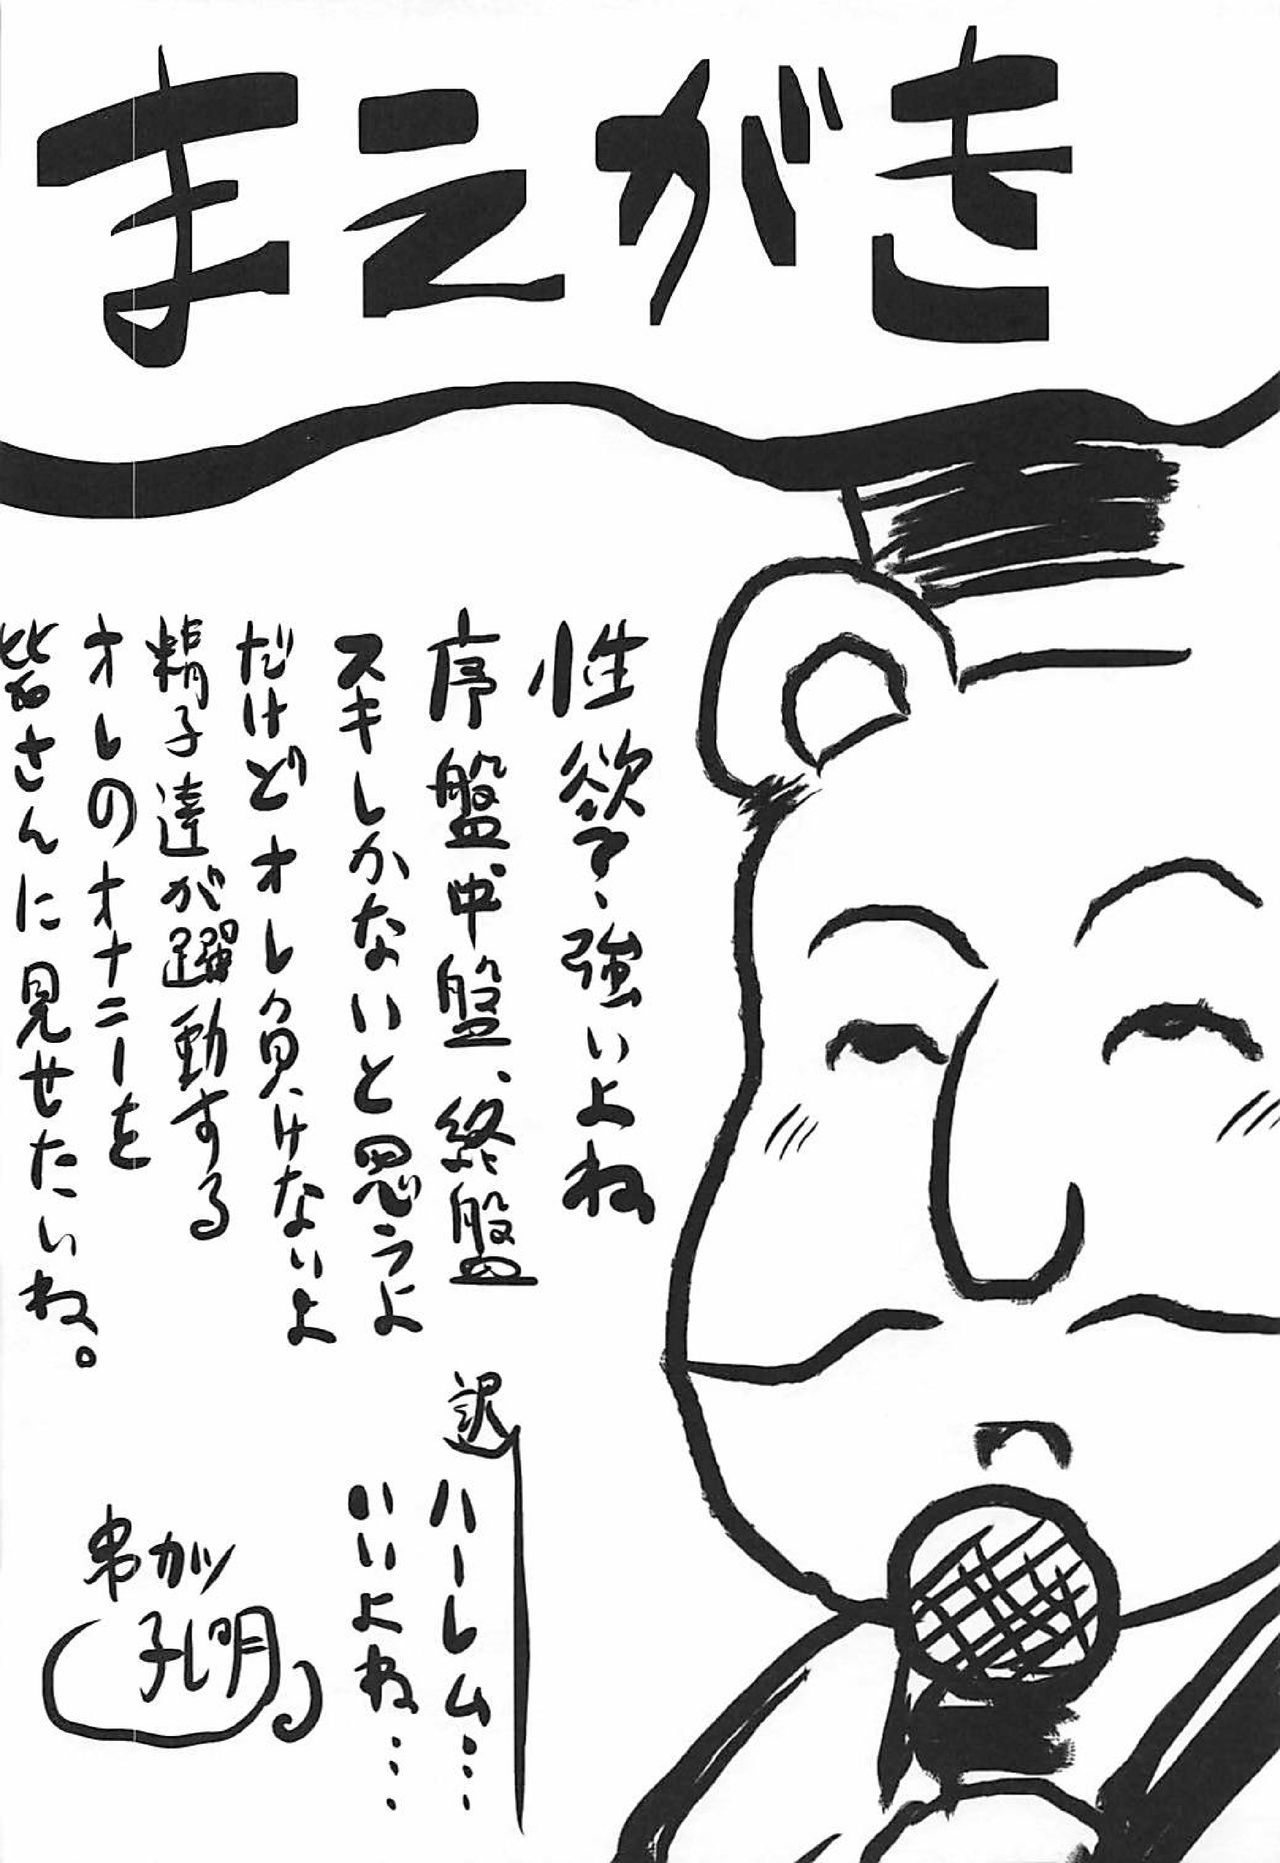 まえがき
性欲？、強いよね
序盤、中盤、終盤
スキしかないと思うよ
だけどオレ負けないよ
精子達が躍動する
オレのオナニーを
皆さんに見せたいね。
訳
ハーレム…
いいよね…
串カツ
孔明